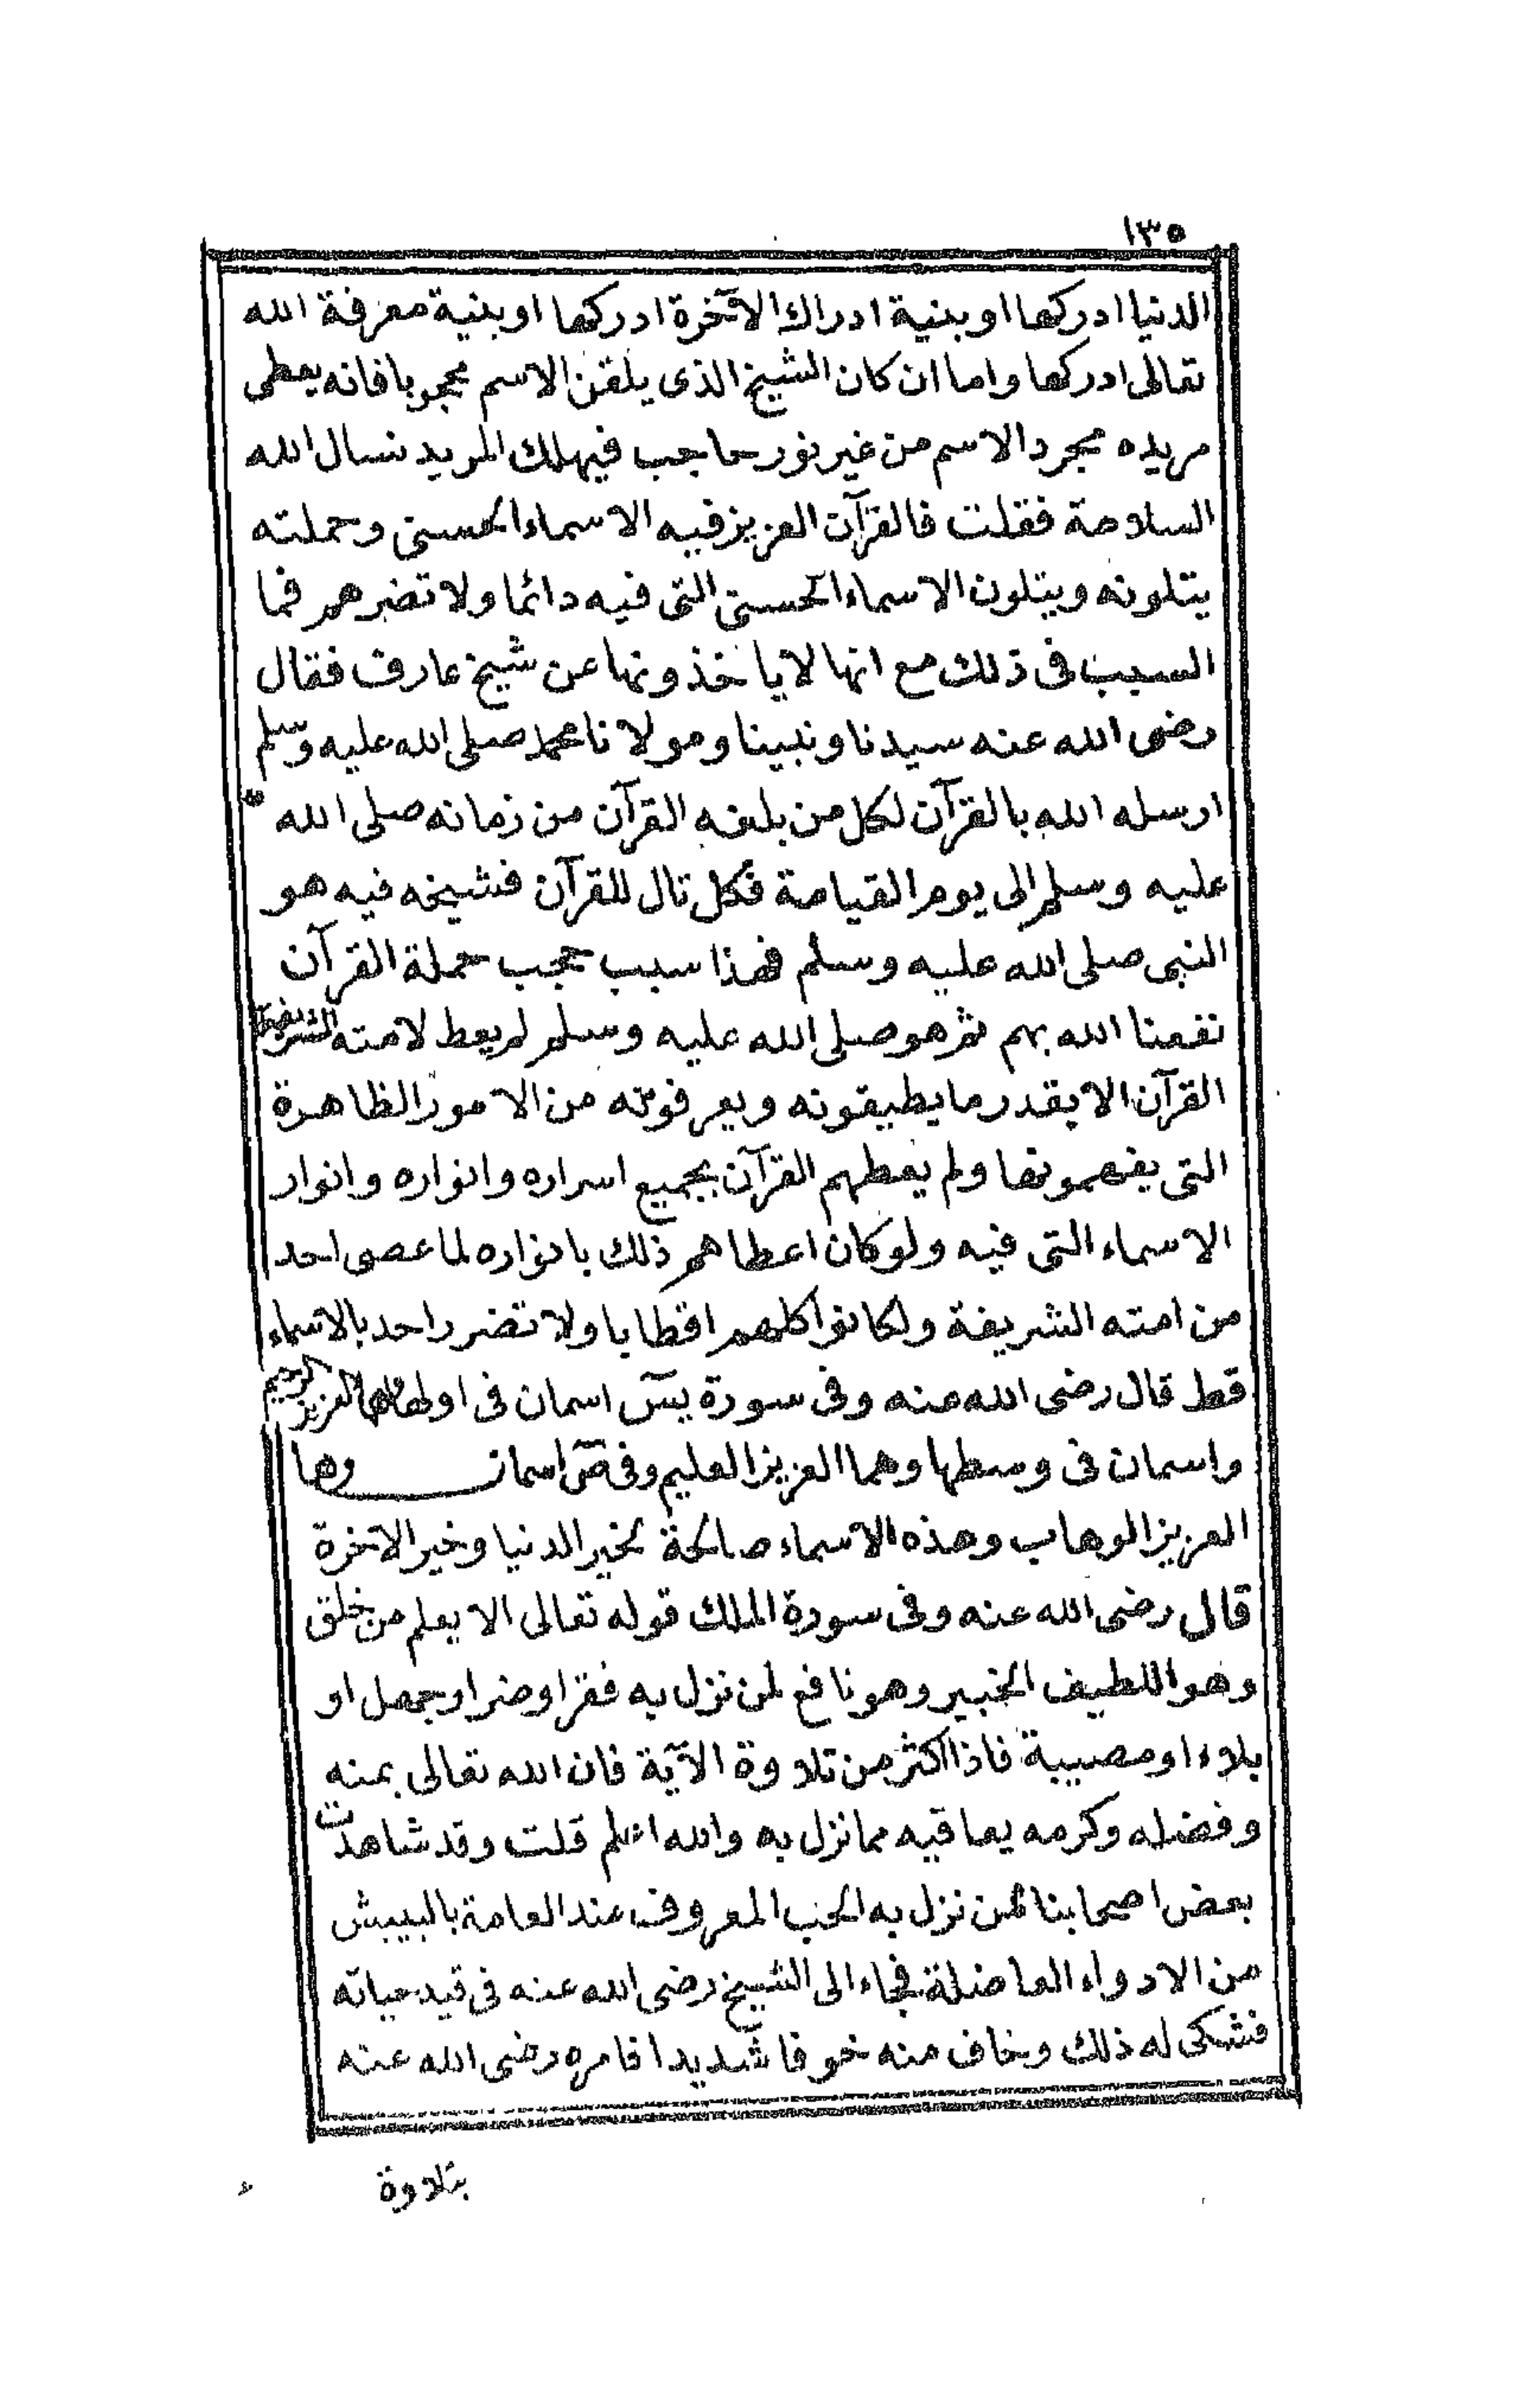 ١٣٥
الدنيا ادركها او بنية ادراك الآخرة ادركها او بنية معرفة الله
تعالى ادركها واما ان كان الشيخ الذى يلقن الاسم محجوبا فانه يعطى
مريده مجرد الاسم من غير نور حاجب فيهلك المريد نسال الله
السلامة فقلت فالقرآن العزيز فيه الاسماء الحسنى وحملته
يتلونه ويتلون الاسماء الحسنى التى فيه دائما ولا تضرهم فما
السبب فى ذلك مع انها لا ياخذونها عن شيخ عارف فقال
رضى الله عنه سيدنا ونبينا ومولانا محمد صلى الله عليه وسلم
ارسله الله بالقرآن لكل من بلغه القرآن من زمانه صلى الله
عليه وسلم الى يوم القيامة فكل تال للقرآن فشيخه فيه هو
النبى صلى الله عليه وسلم فهذا سبب حجب حملة القرآن
نفعنا الله بهم ثم هو صلى الله عليه وسلم لم يعط لامته الشريفة
القرآن الا بقدر ما يطيقونه ويعرفونه من الامور الظاهرة
التى يفهمونها ولم يعطهم القرآن بجميع اسراره وانواره وانوار
الاسماء التى فيه ولو كان اعطاهم ذلك بانواره لما عصى احد
من امته الشريفة ولكانوا كلهم اقطابا ولا تضرر احد بالاسماء
قط قال رضى الله عنه وفى سورة يس اسمان فى اولها وهما العزيز الرحيم
واسمان فى وسطها وهما العزيز العليم وفى ص اسمان وهما
العزيز الوهاب وهذه الاسماء صالحة لخير الدنيا وخير الآخرة
قال رضى الله عنه وفى سورة الملك قوله تعالى الا يعلم من خلق
وهو اللطيف الخبير وهو نافع لمن نزل به فقر او ضر او جهل او
بلاء او مصيبة فاذا اكثر من تلاوة الآية فان الله تعالى بمنه
وفضله وكرمه يعافيه مما نزل به والله اعلم قلت وقد شاهدت
بعض اصحابنا ممن نزل به الحب المعروف عند العامة بالبيبش
من الادواء العاضلة فجاء الى الشيخ رضى الله عنه فى قيد حياته
فشكى له ذلك وخاف منه خوفا شديدا فامره رضى الله عنه
بتلاوة